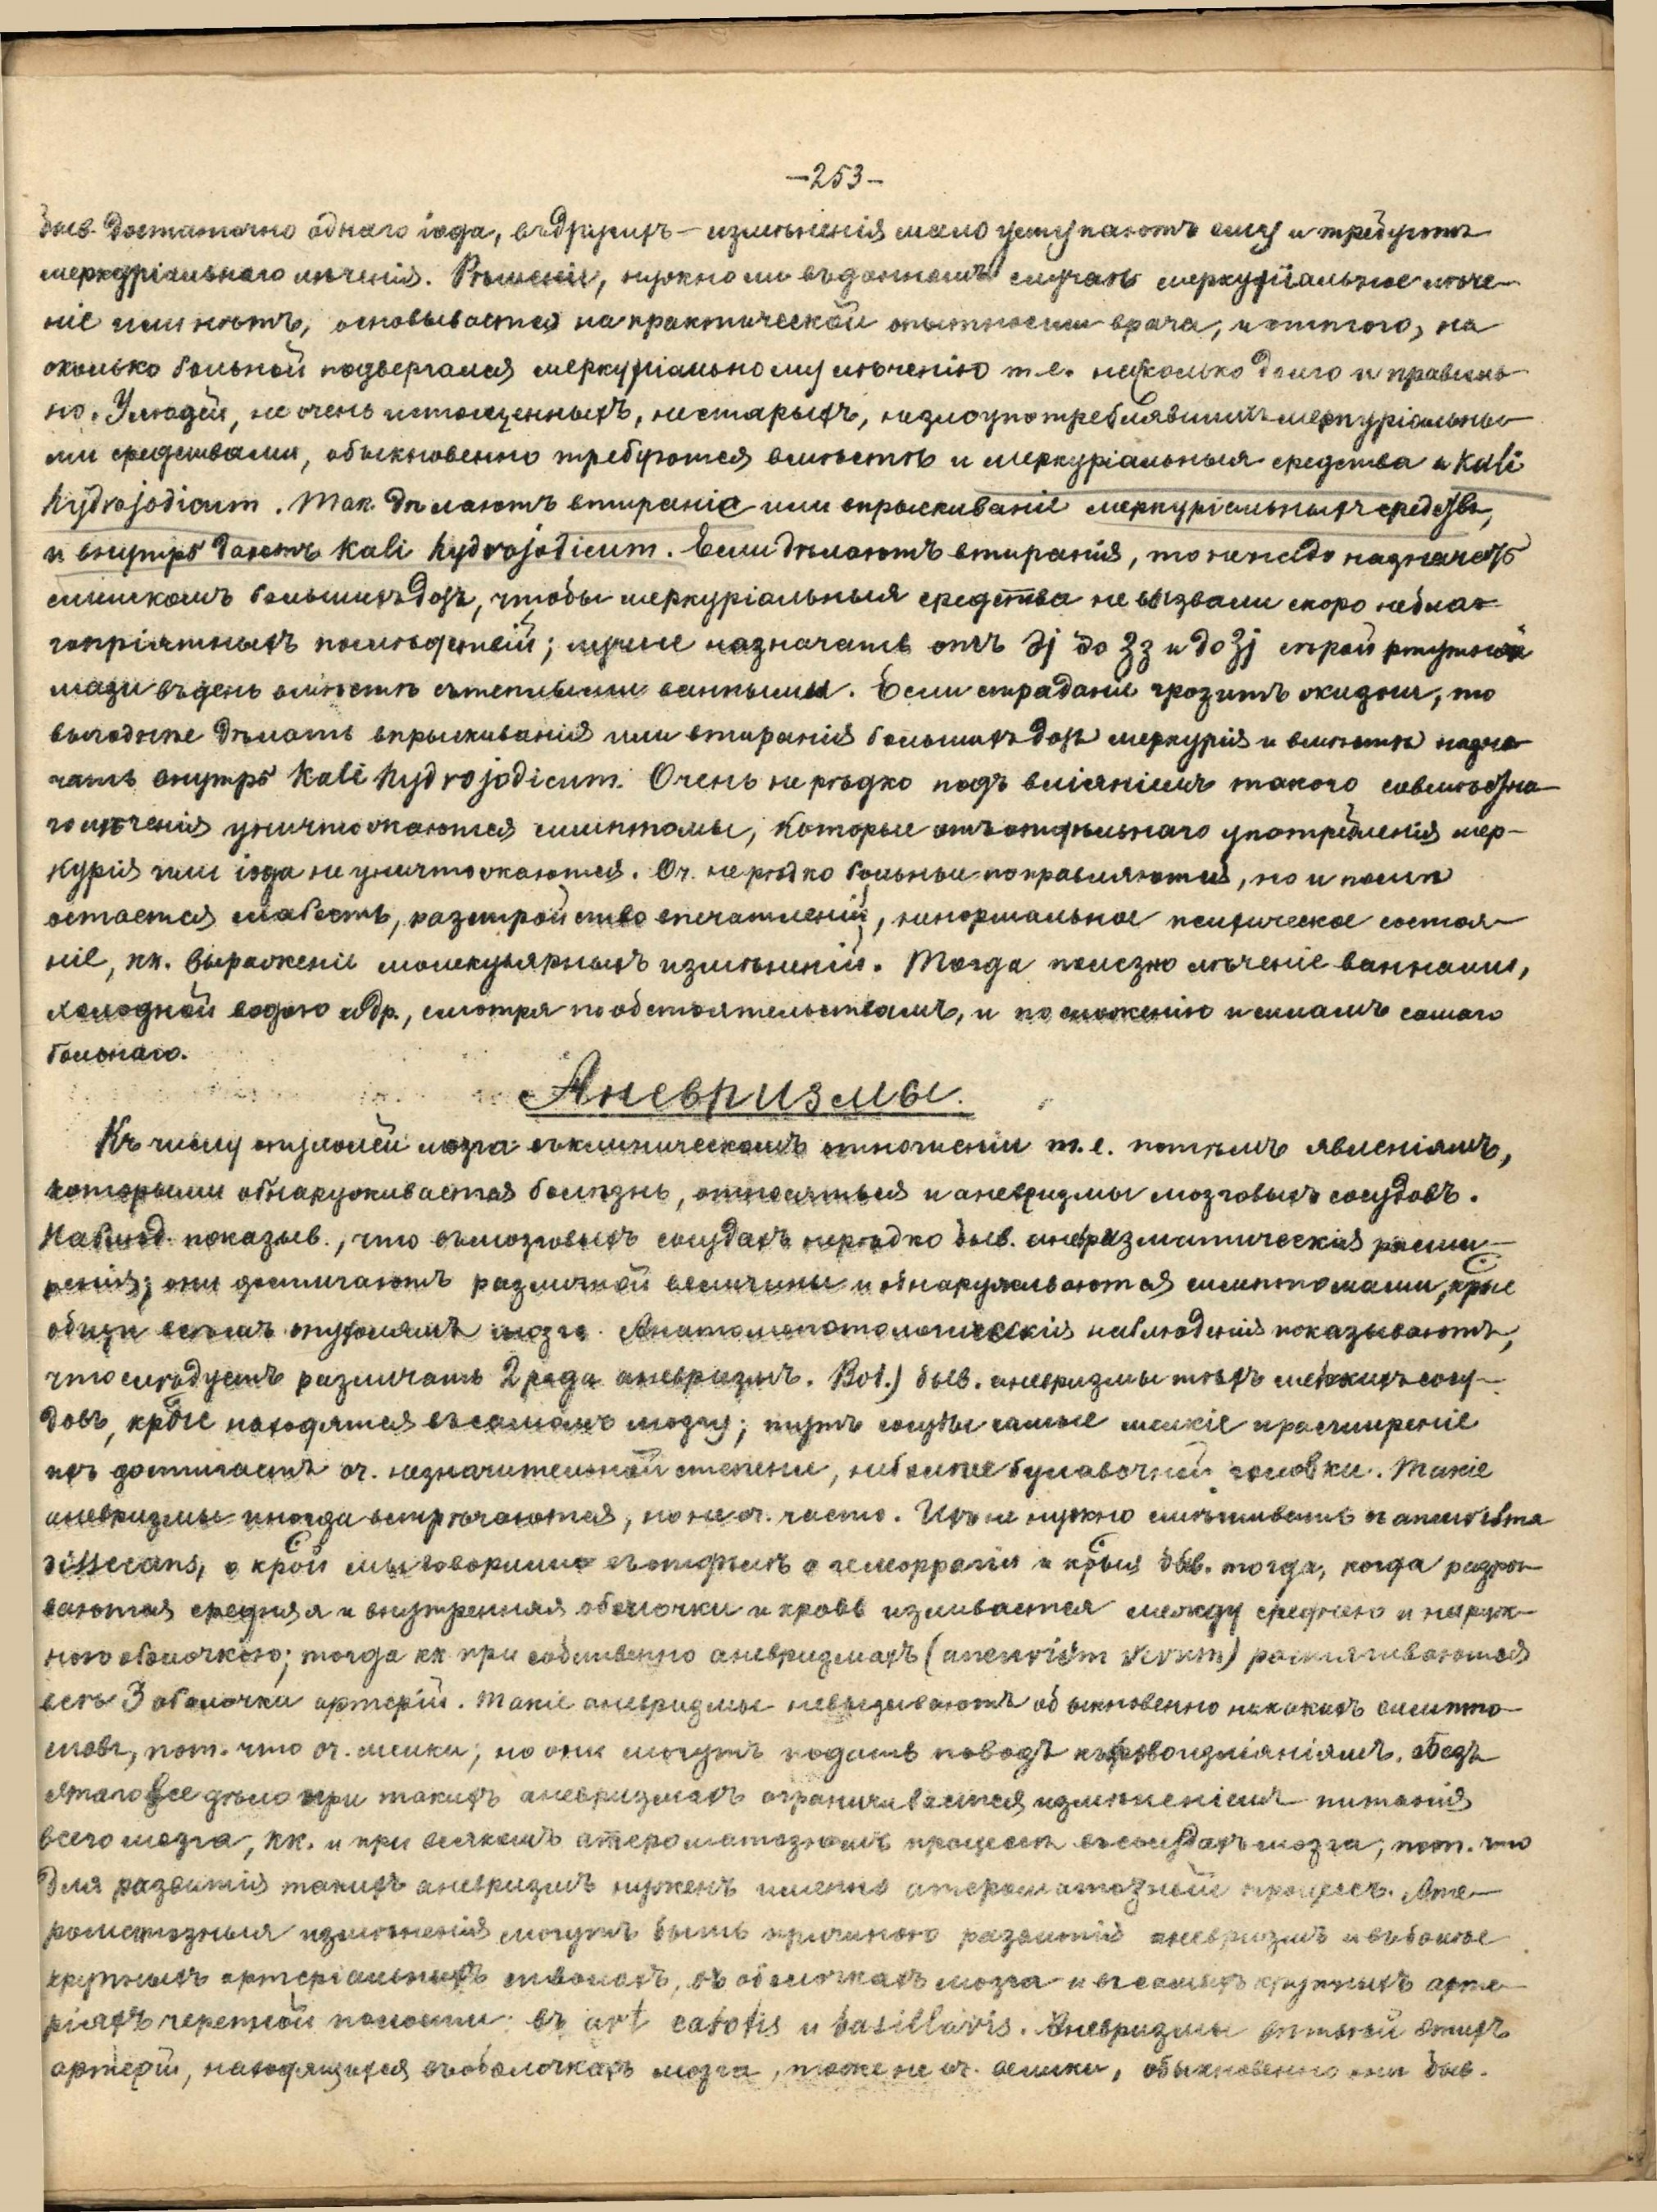 -253-
быв. достаточно однаго iода, въ другихъ - измѣненiя мало уступаютъ ему и требуютъ
меркурiальнаго лѣченiя. Рѣшенiе, нужно ли въ данномъ случаѣ меркурiальное лѣче-
нiе или нѣтъ, основывается на практической опытности врача, и отъ того, на
сколько больной подвергался меркурiальному лѣченiю т.е. насколько долго и правиль-
но. У людей, не очень истощенныхъ, не старыхъ, не злоупотреблявшихъ меркурiальны-
ми средствами, обыкновенно требуются вмѣстѣ и меркурiальныя средства и Kali
hydrojodicum. Так. дѣлаютъ втиранiе или впрыскиванiе меркурiальныхъ средствъ,
и внутрь даютъ Kali hydrojodicum. Если дѣлаютъ втиранiя, то не надо назначать
слишкомъ большихъ дозъ, чтобы меркурiальныя средства не вызвали скоро небла-
гопрiятныхъ послѣдствiй; лучше назначать отъ Эj до Ʒз и до Ʒj сѣрой ртутной
мази въ день вмѣстѣ съ теплыми ваннами. Если страданiе грозитъ жизни, то
выгоднѣе дѣлать впрыскиванiя или втиранiя большихъ дозъ меркурiя и вмѣстѣ назна-
чать внутрь Kali hydrojodicum. Очень не рѣдко подъ влiянiемъ такого совмѣстна-
го лѣченiя уничтожаются симптомы, которые отъ отдѣльнаго употребленiя мер-
курiя или iода не уничтожаются. Оч. не рѣдко больные поправляются, но и послѣ
остается слабость, разстройство впечатленiй, ненормальное психическое состоя-
нiе, кк. выраженiе молекулярныхъ измѣненiй. Тогда полезно лѣченiе ваннами,
холодной водою и др., смотря по обстоятельствамъ, и по сложенiю и силамъ самаго
больнаго.
Аневризмы.
Къ числу опухолей мозга въ клиническомъ отношенiи т.е. по тѣмъ явленiямъ,
которыми обнаруживается болѣзнь, относятся и аневризмы мозговыхъ сосудовъ.
Наблюд. показыв., что въ мозговыхъ сосудахъ нерѣдко быв. аневризматическiя расши-
ренiя; они достигаютъ различной величины и обнаруживаются симптомами, крые
общи всѣмъ опухолямъ мозга. Анатомопотологическiя наблюденiя показываютъ,
что слѣдуетъ различать 2 рода аневризмъ. Во 1.) быв. аневризмы тѣхъ мелкихъ сосу-
довъ, крые находятся въ самомъ мозгу; тутъ сосуды самые мелкiе и расширенiе
ихъ достигаетъ оч. незначительной степени, не болѣе булавочной головки. Такiе
аневризмы иногда встрѣчаются, но не оч. часто. Ихъ не нужно смѣшивать съ aneurisma
dissecans, о крой мы говорили въ отдѣлѣ о геморрагiи и крыя быв. тогда, когда разры-
ваются средняя и внутренняя оболочки и кровь изливается между среднею и наруж-
ною оболочкою; тогда кк при собственно аневризмахъ (aneurism verum) растягиваются
всѣ 3 оболочки артерiй. Такiе аневризмы не вызываютъ обыкновенно никакихъ симпто-
мовъ, пот. что оч. мелки, но они могутъ подать поводъ къ кровоизлiянiямъ. Безъ
этаго все дѣло при такихъ аневризмахъ ограничивается измѣненiемъ питанiя
всего мозга, кк. и при всякомъ атероматозномъ процессѣ въ сосудахъ мозга, пот. что
для развитiя такихъ аневризмъ нуженъ именно атероматозный процессъ. Ате-
роматозныя измѣненiя могутъ быть причиною развитiя аневризмъ и въ болѣе
крупныхъ артерiальныхъ стволахъ, въ оболочкахъ мозга и въ самыхъ крупныхъ арте-
рiяхъ черепной полости: въ art carotis и basillaris. Аневризмы вѣтвей этихъ
артерiй, находящихся въ оболочкахъ мозга, тоже не оч. велики, обыкновенно они быв.